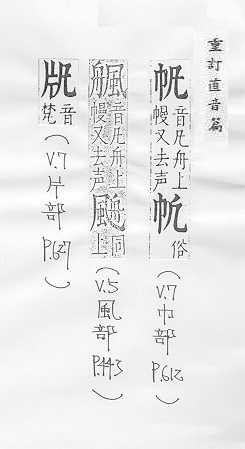 重訂直音篇
帆 音凡舟上幔又去声 俗 (V.7 巾部 P.612)
音凡舟上幔又去声 同上 (V.5 風部 P.443)
音梵 (V.7 片部 P.627)